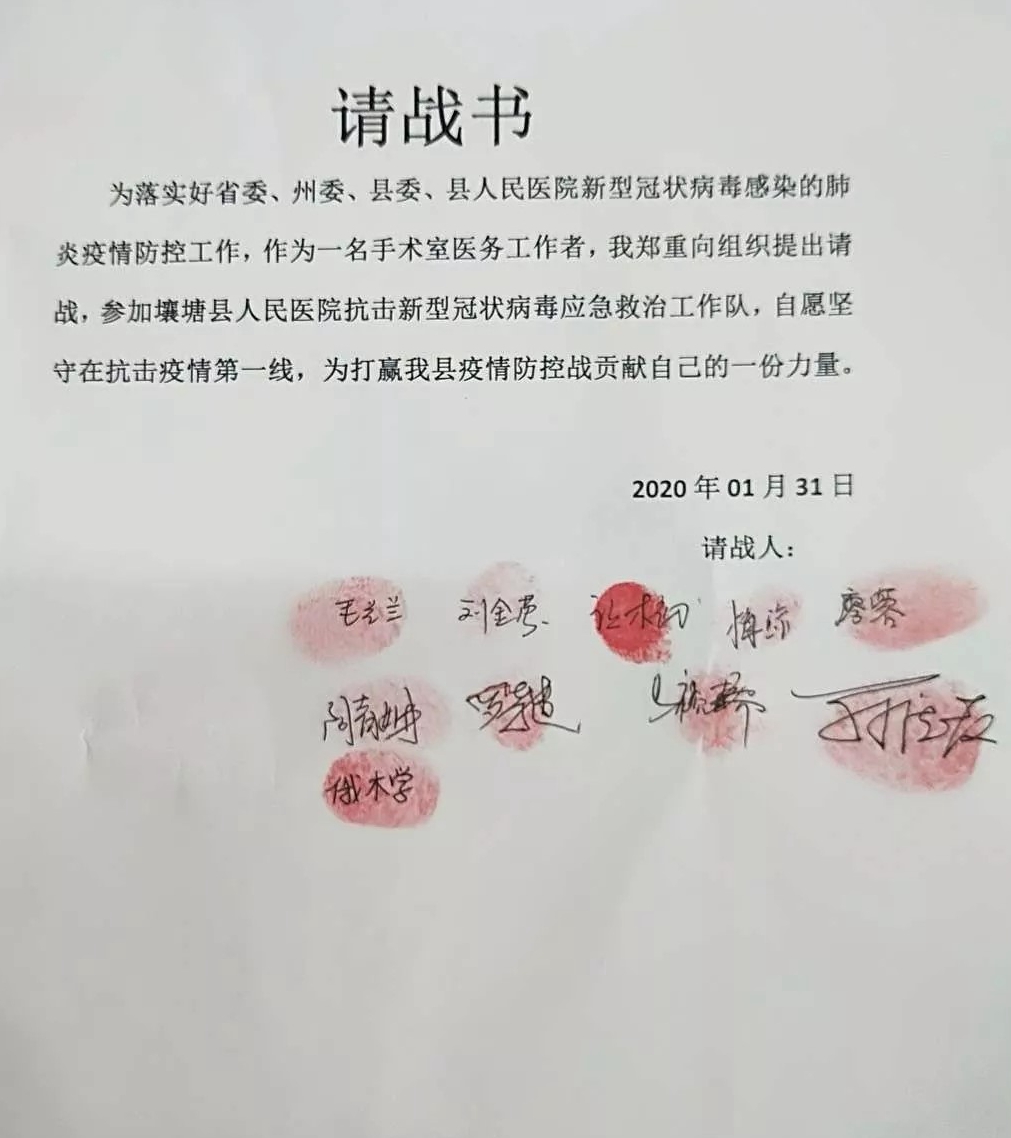 请战书
为落实好省委、州委、县委、县人民医院新型冠状病毒感染的肺
炎疫情防控工作，作为一名手术室医务工作者，我郑重向组织提出请
战，参加壤塘县人民医院抗击新型冠状病毒应急救治工作队，自愿坚
守在抗击疫情第一线，为打赢我县疫情防控战贡献自己的一份力量。
2020 年 01 月 31 日
请战人：
廖蓉
俄木学